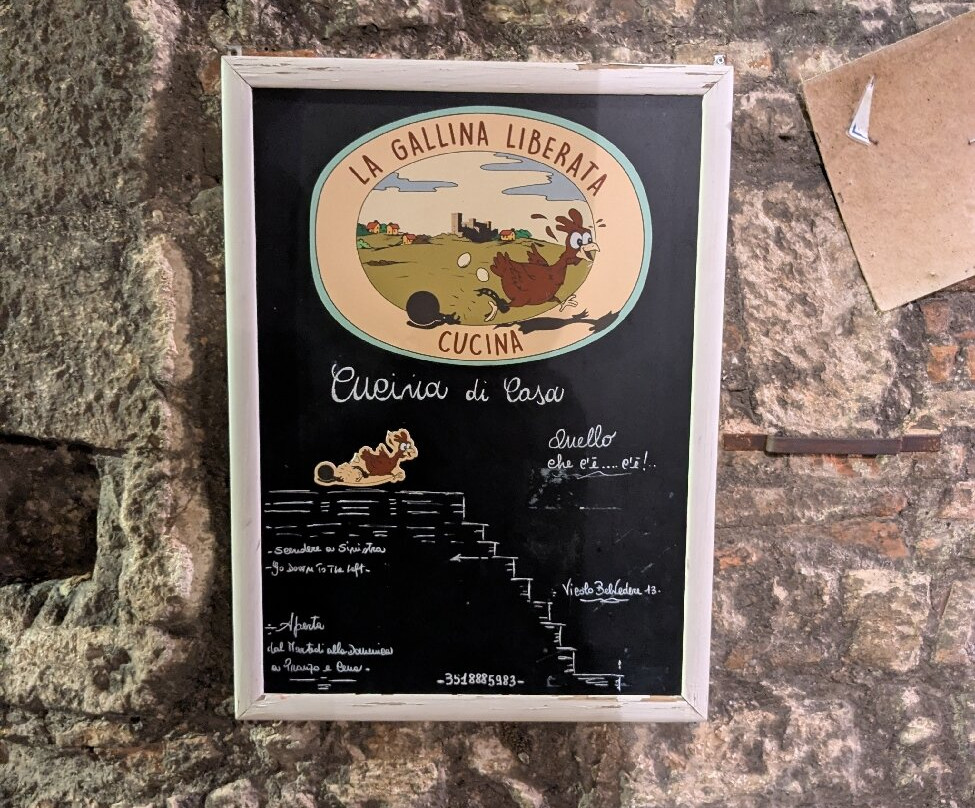 LA GALLINA LIBERATA
CUCINA
Cucina di Casa
Quello
che c'è.... c'è!..
- Scendere a Sinistra
- Go Down To The Left -
Vicolo Belvedere 13.
Aperta
dal Martedì alla Domenica
a Pranzo e Cena -
- 3518885983 -